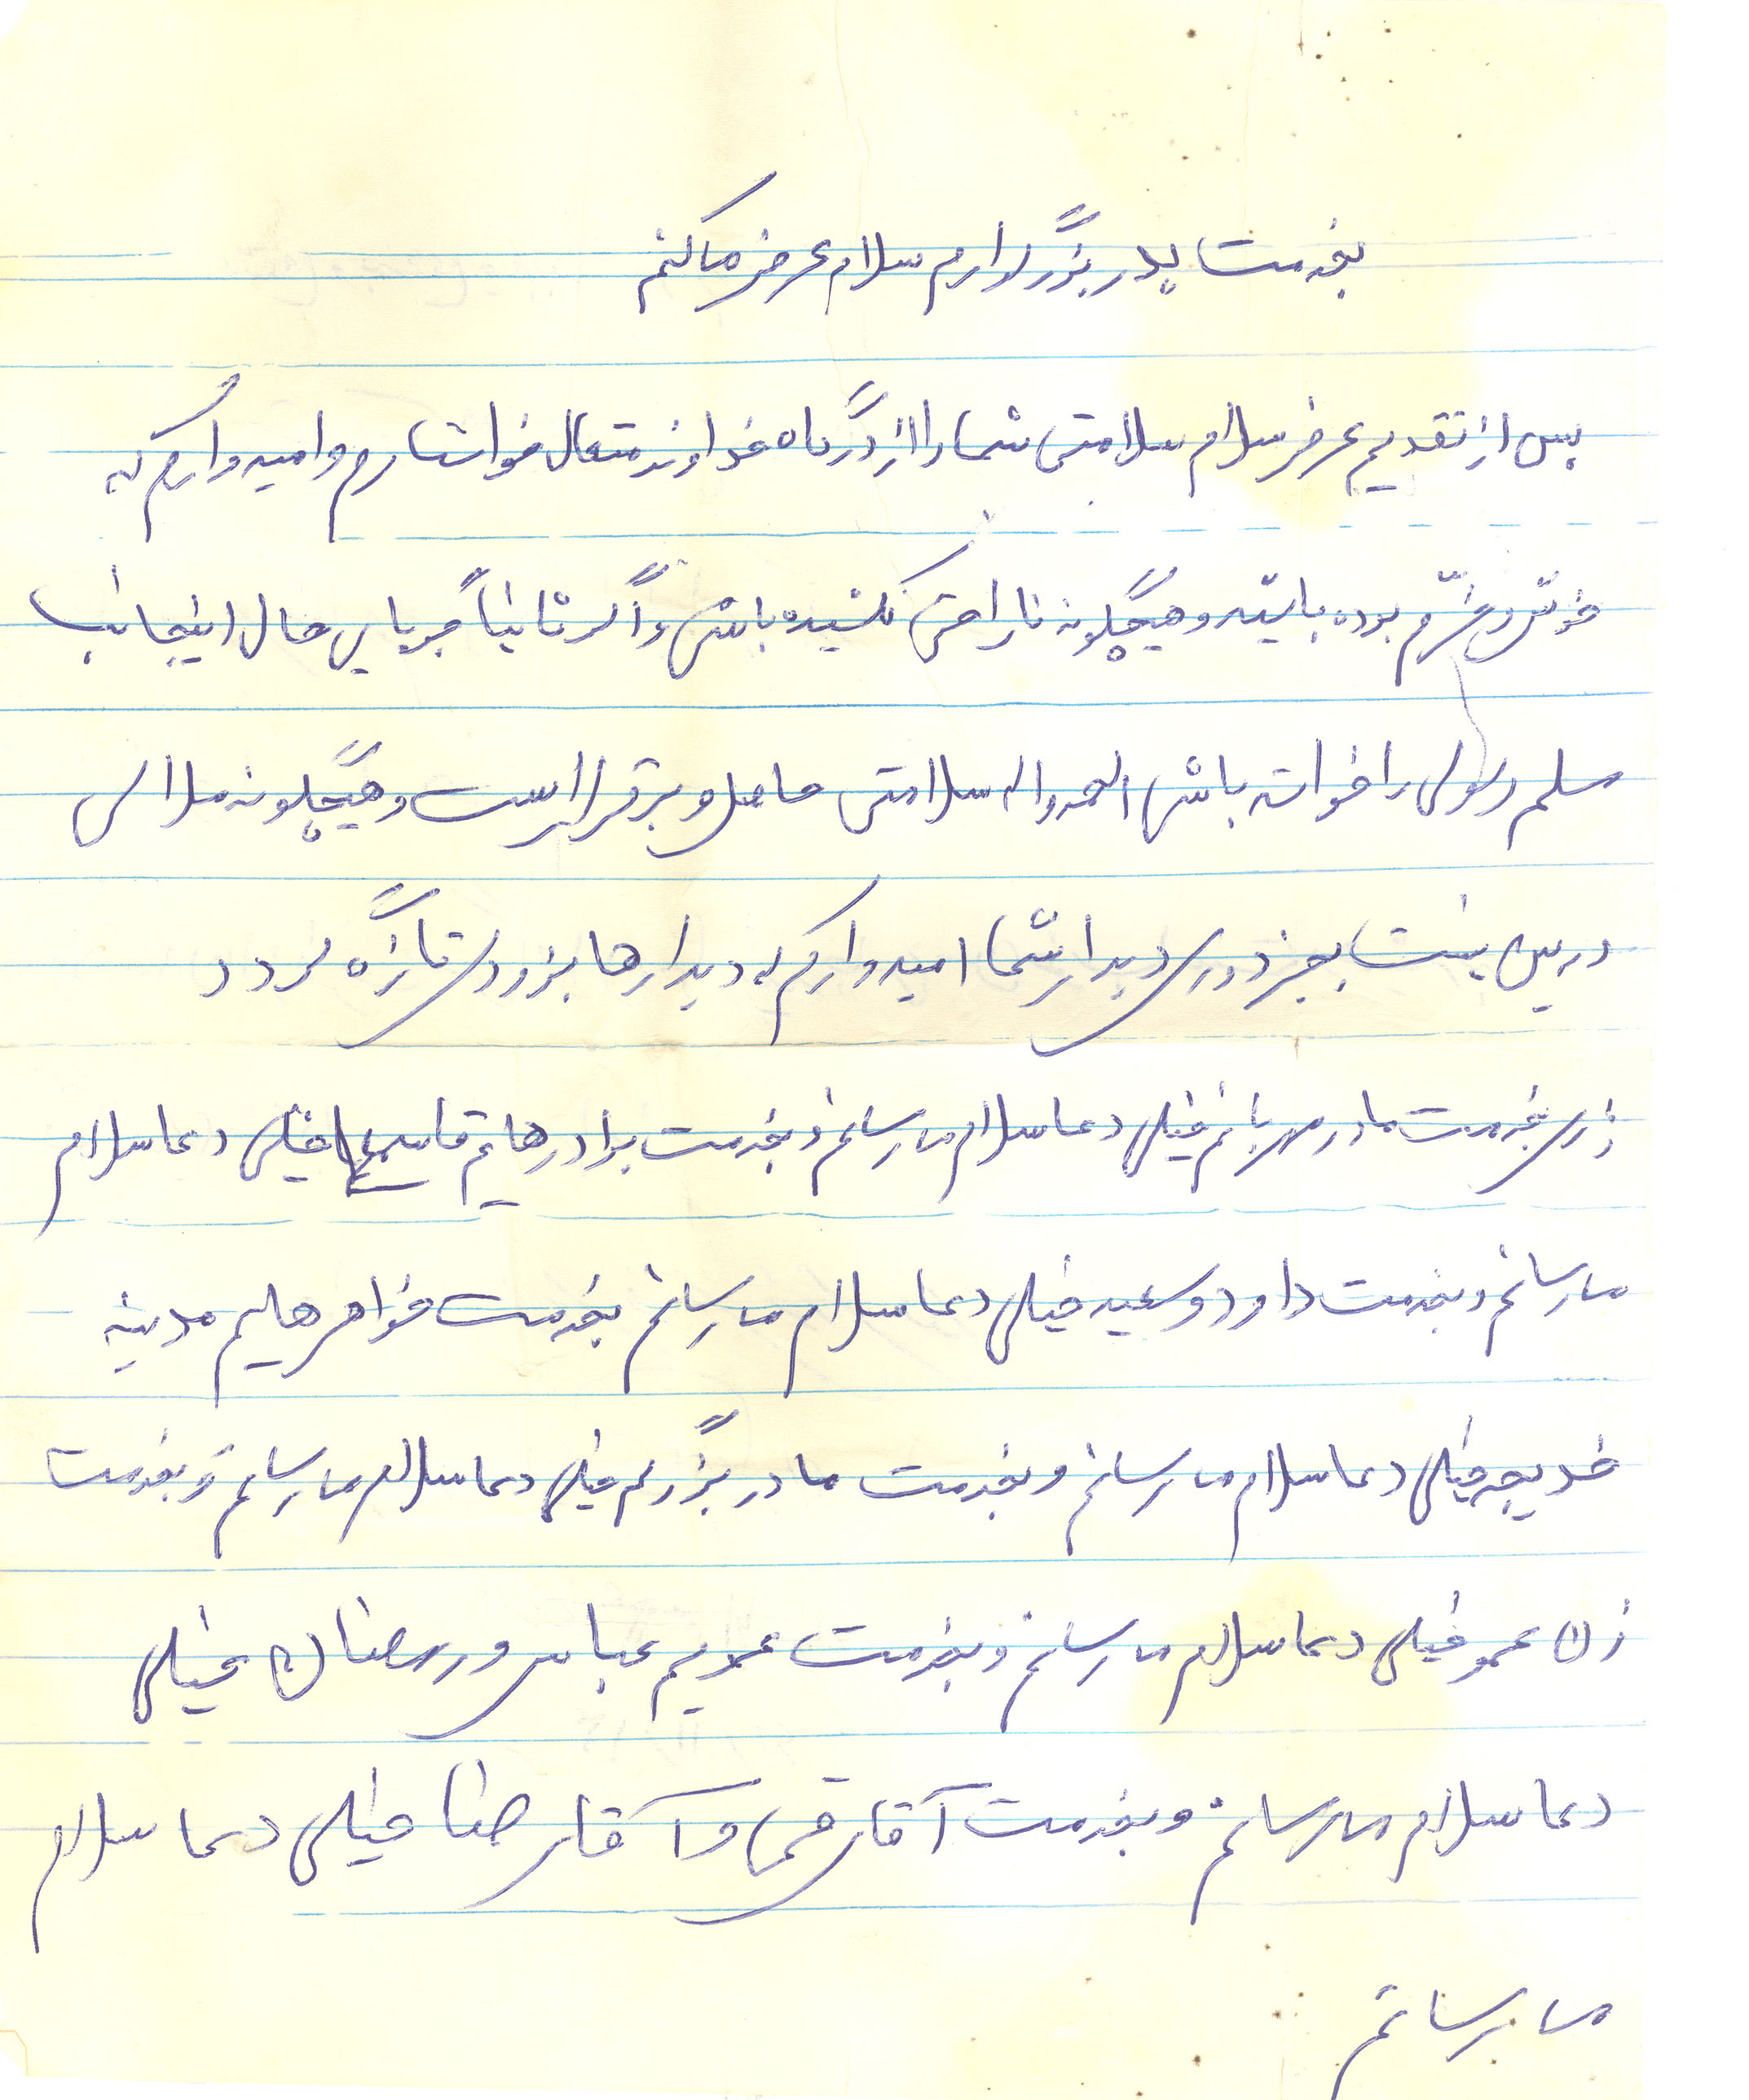 بخدمت پدر بزرگوارم سلام عرض میکنم
پس از تقدیم عرض سلام سلامتی شما را از درگاه خداوند متعال خواستارم و امیدوارم که
خوش و خرّم بوده باشید و هیچگونه ناراحتی نکشیده باشی و اگر ثانیاً جویای حال اینجانب
سلم رسولی را خواسته باشی الحمدوالله سلامتی حاصل و برقرار است و هیچگونه ملالی
دربین نیست بجز دوری دیدار شما امیدوارم که دیدارها بزودی تازه گردد
بخدمت مادر مهربانم خیلی دعا سلام می رسانم و بخدمت برادرهایم قاسم خیلی دعا سلام
می رسانم و بخدمت داود و سعید خیلی دعا سلام می رسانم بخدمت خواهرهایم مدینه
خدیجه خیلی دعا سلام می رسانم و بخدمت مادر بزرگم خیلی دعا سلام می رسانم و بخدمت
زن عمو خیلی دعا سلام می رسانم و بخدمت عمویم عباس و رمضان خیلی
دعا سلام می رسانم و بخدمت آقای و آقا رضا خیلی دعا سلام
می رسانم